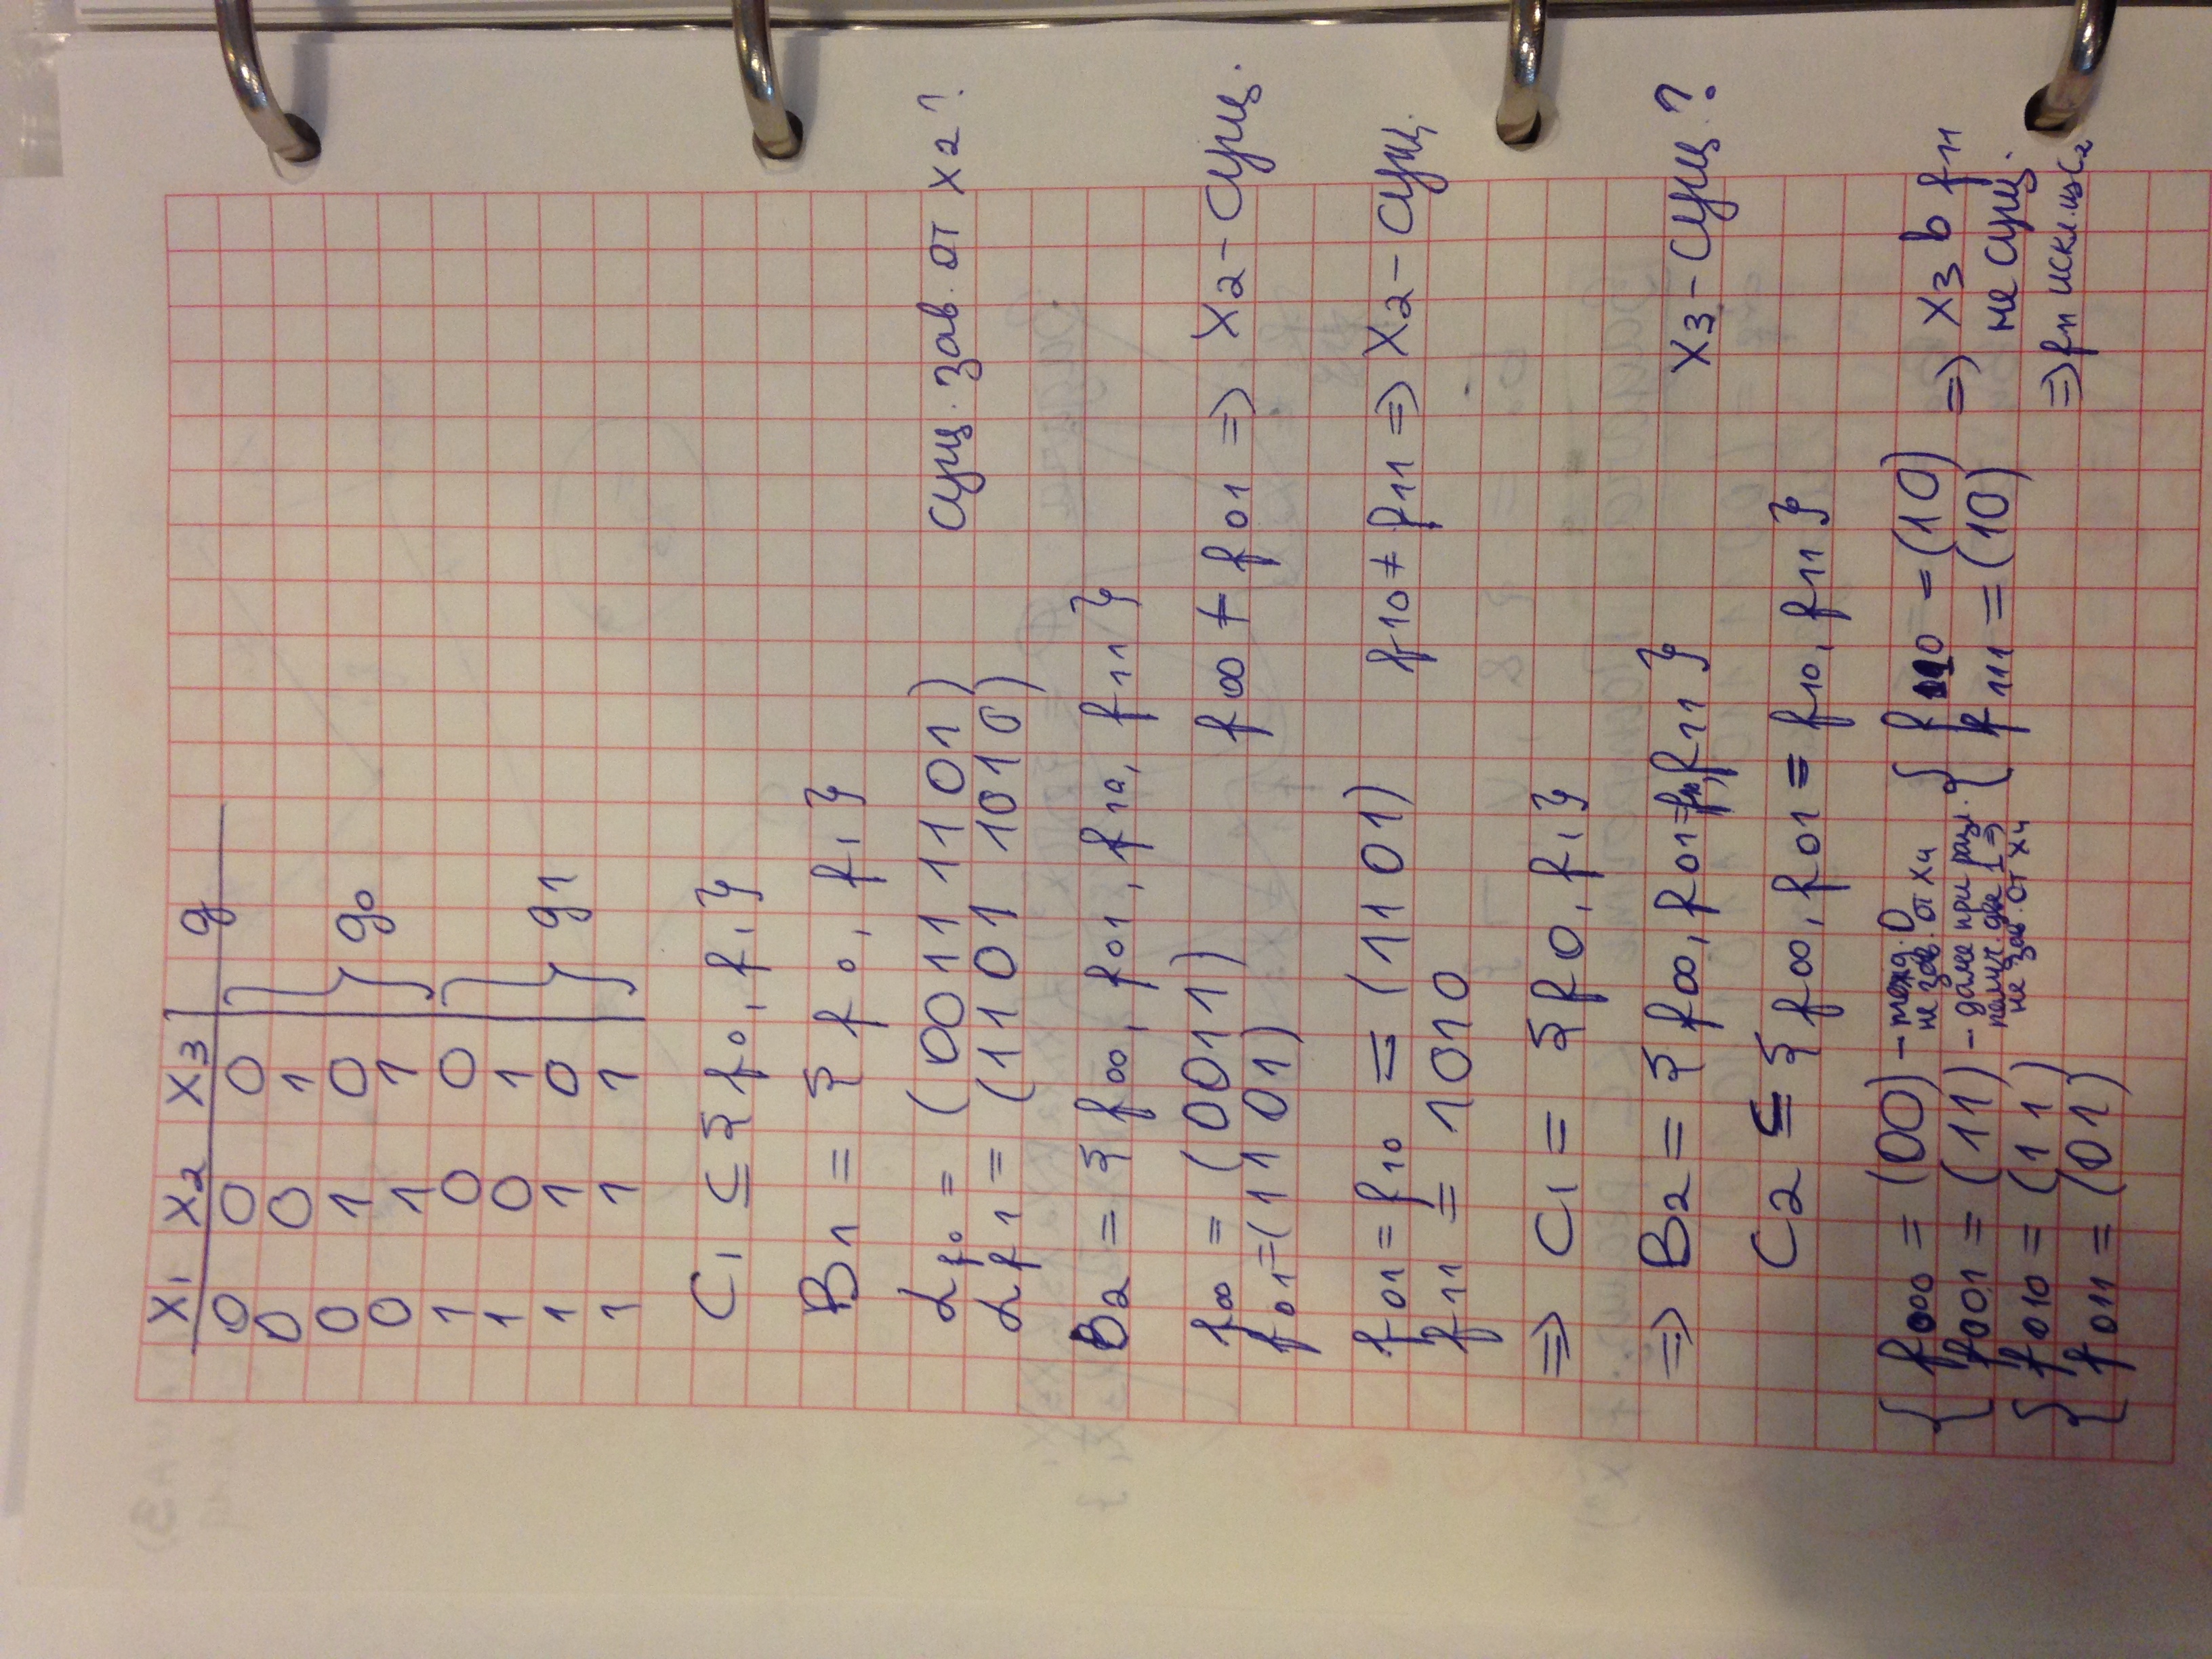 x1 x2 x3 g
0 0 0
0 0 1
0 1 0 } g0
0 1 1
1 0 0
1 0 1
1 1 0 } g1
1 1 1
C1 ⊆ {f0, f1}
B1 = {f0, f1}
αf0 = (0011 1101) сущ. зав. от x2?
αf1 = (1101 1010)
B2 = {f00, f01, f10, f11}
f00 = (0011) f00 ≠ f01 => x2 - сущ.
f01 = (1101)
f01 = f10 = (1101) f10 ≠ f11 => x2 - сущ.
f11 = 1010
=> C1 = {f0, f1}
=> B2 = {f00, f01=f10, f11} x3 - сущ?
C2 ⊆ {f00, f01 = f10, f11}
{ f000 = (00) - тожд. 0 не зав. от x4 { f110 = (10) => x3 в f11
f001 = (11) - даже при разл. { f111 = (10) не сущ.
{ f010 = (11) получ. две 1 => не зав. от x4 => f11 искл. из C2
{ f011 = (01)